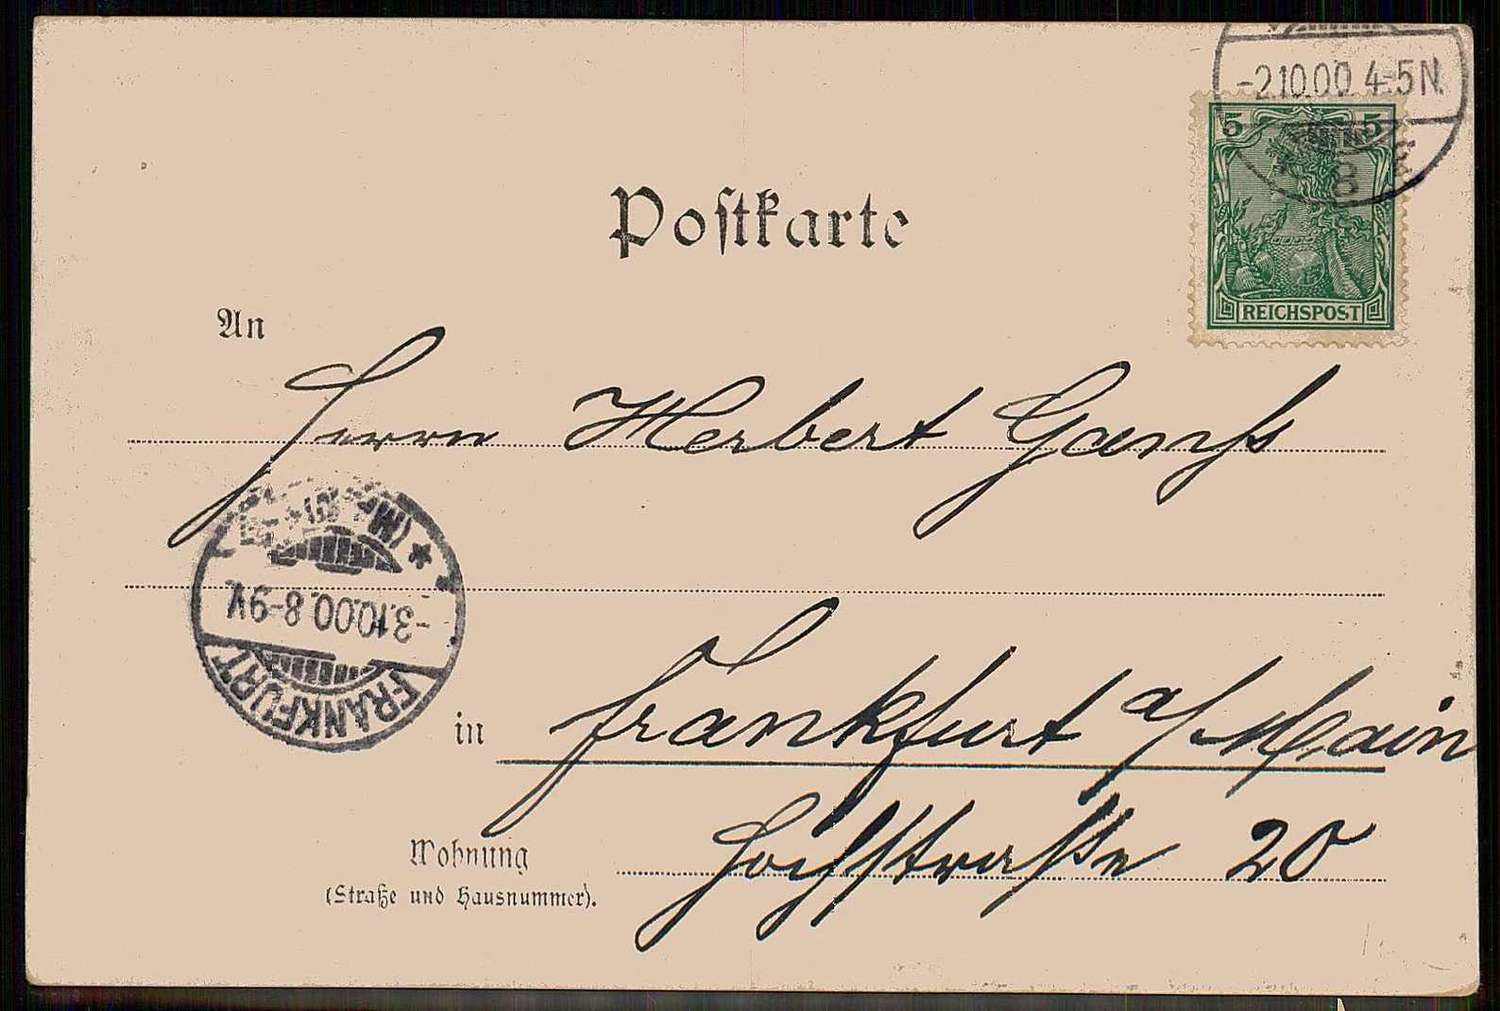 -2.10.00. 4-5N.
8
5 5
REICHSPOST
Postkarte
An
Herrn Herbert Ganß
(M.)
-3.10.00.8-9V.
FRANKFURT
in Frankfurt a/Main
Wohnung Hochstraße 20
(Straße und Hausnummer).